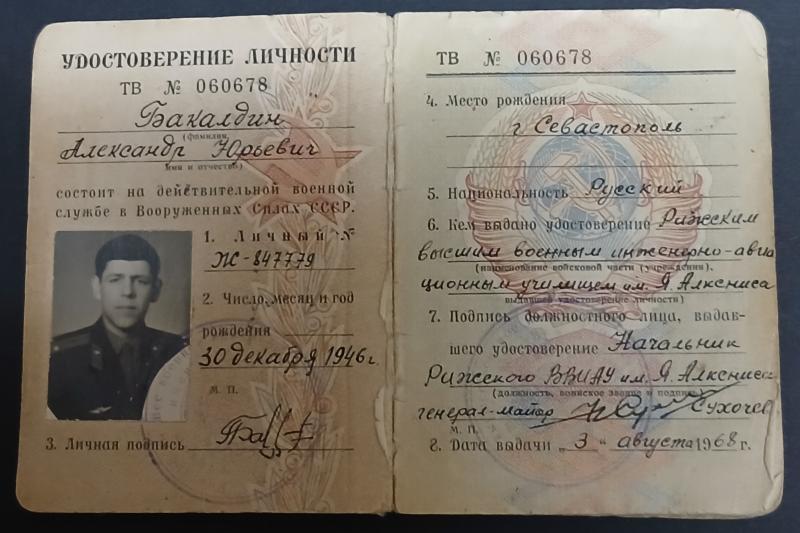 УДОСТОВЕРЕНИЕ ЛИЧНОСТИ
ТВ № 060678
Бакалдин
(фамилия,
Александр Юрьевич
имя и отчество)
состоит на действительной военной
службе в Вооруженных Силах СССР.
1. Личный №
Ж-847779
2. Число, месяц и год
рождения
30 декабря 1946 г.
М. П.
3. Личная подпись
ТВ № 060678
4. Место рождения
г Севастополь
5. Национальность Русский
6. Кем выдано удостоверение Рижским
высшим военным инженерно-авиа
(наименование войсковой части (учреждения),
ционным училищем им. Я. Алксниса
выдавшей удостоверение личности)
7. Подпись должностного лица, выдав-
шего удостоверение Начальник
Рижского ВВИАУ им. Я. Алксниса
(должность, воинское звание и подпись)
генерал-майор Сухочев
М. П.
8. Дата выдачи „3" августа 1968 г.